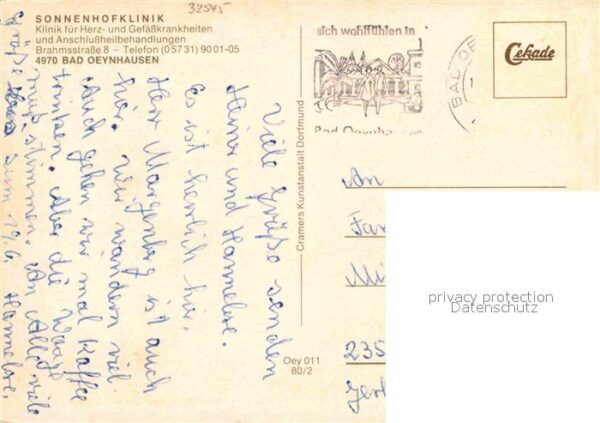 32545
SONNENHOFKLINIK
Klinik für Herz- und Gefäßkrankheiten
und Anschlußheilbehandlungen
Brahmsstraße 8 – Telefon (0 57 31) 90 01-05
4970 BAD OEYNHAUSEN
sich wohlfühlen in
Bad Oeynhausen
BAD OE
Cekade
Viele Grüße senden
Heiner und Hannelore.
Es ist herrlich hier.
Herr Margenberg ist auch
hier. Wir wandern viel
Auch gehen wir mal Kaffee
trinken. Aber die Waage
muß stimmen. An Alle viele
Grüße 19.6. Hannelore.
Cramers Kunstanstalt Dortmund
Oey 011
80/2
An
Fam
Mi
235
privacy protection
Datenschutz